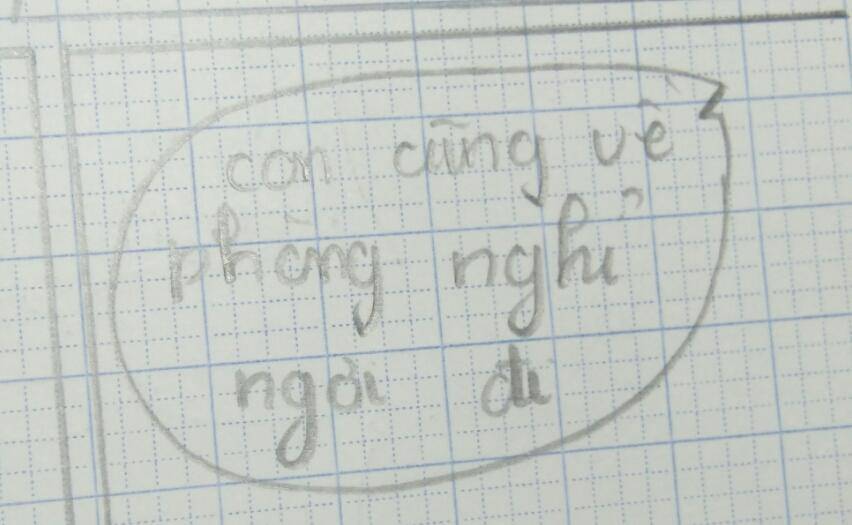 con cũng về
phòng nghỉ
ngơi đi